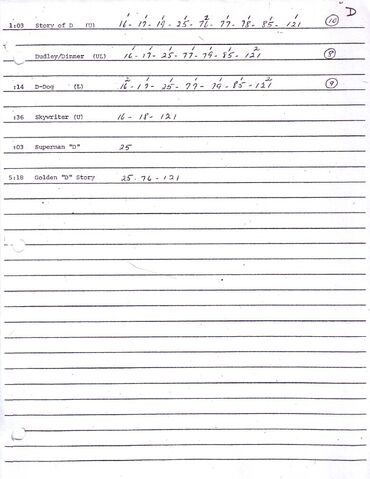 D
1 1 1 1 2 1 1 1 1
1:03 Story of D (U) 16- 17- 19- 25- 76- 77- 78- 85- 121 10
1 1 1 1 1 1 2
Dudley/Dinner (UL) 16- 17- 25- 77- 79- 85- 121 8
2 1 1 1 1 1 2
:14 D-Dog (L) 16- 17- 25- 77- 79- 85- 121 9
:36 Skywriter (U) 16 - 18 - 121
:03 Superman "D" 25
5:18 Golden "D" Story 25- 76 - 121